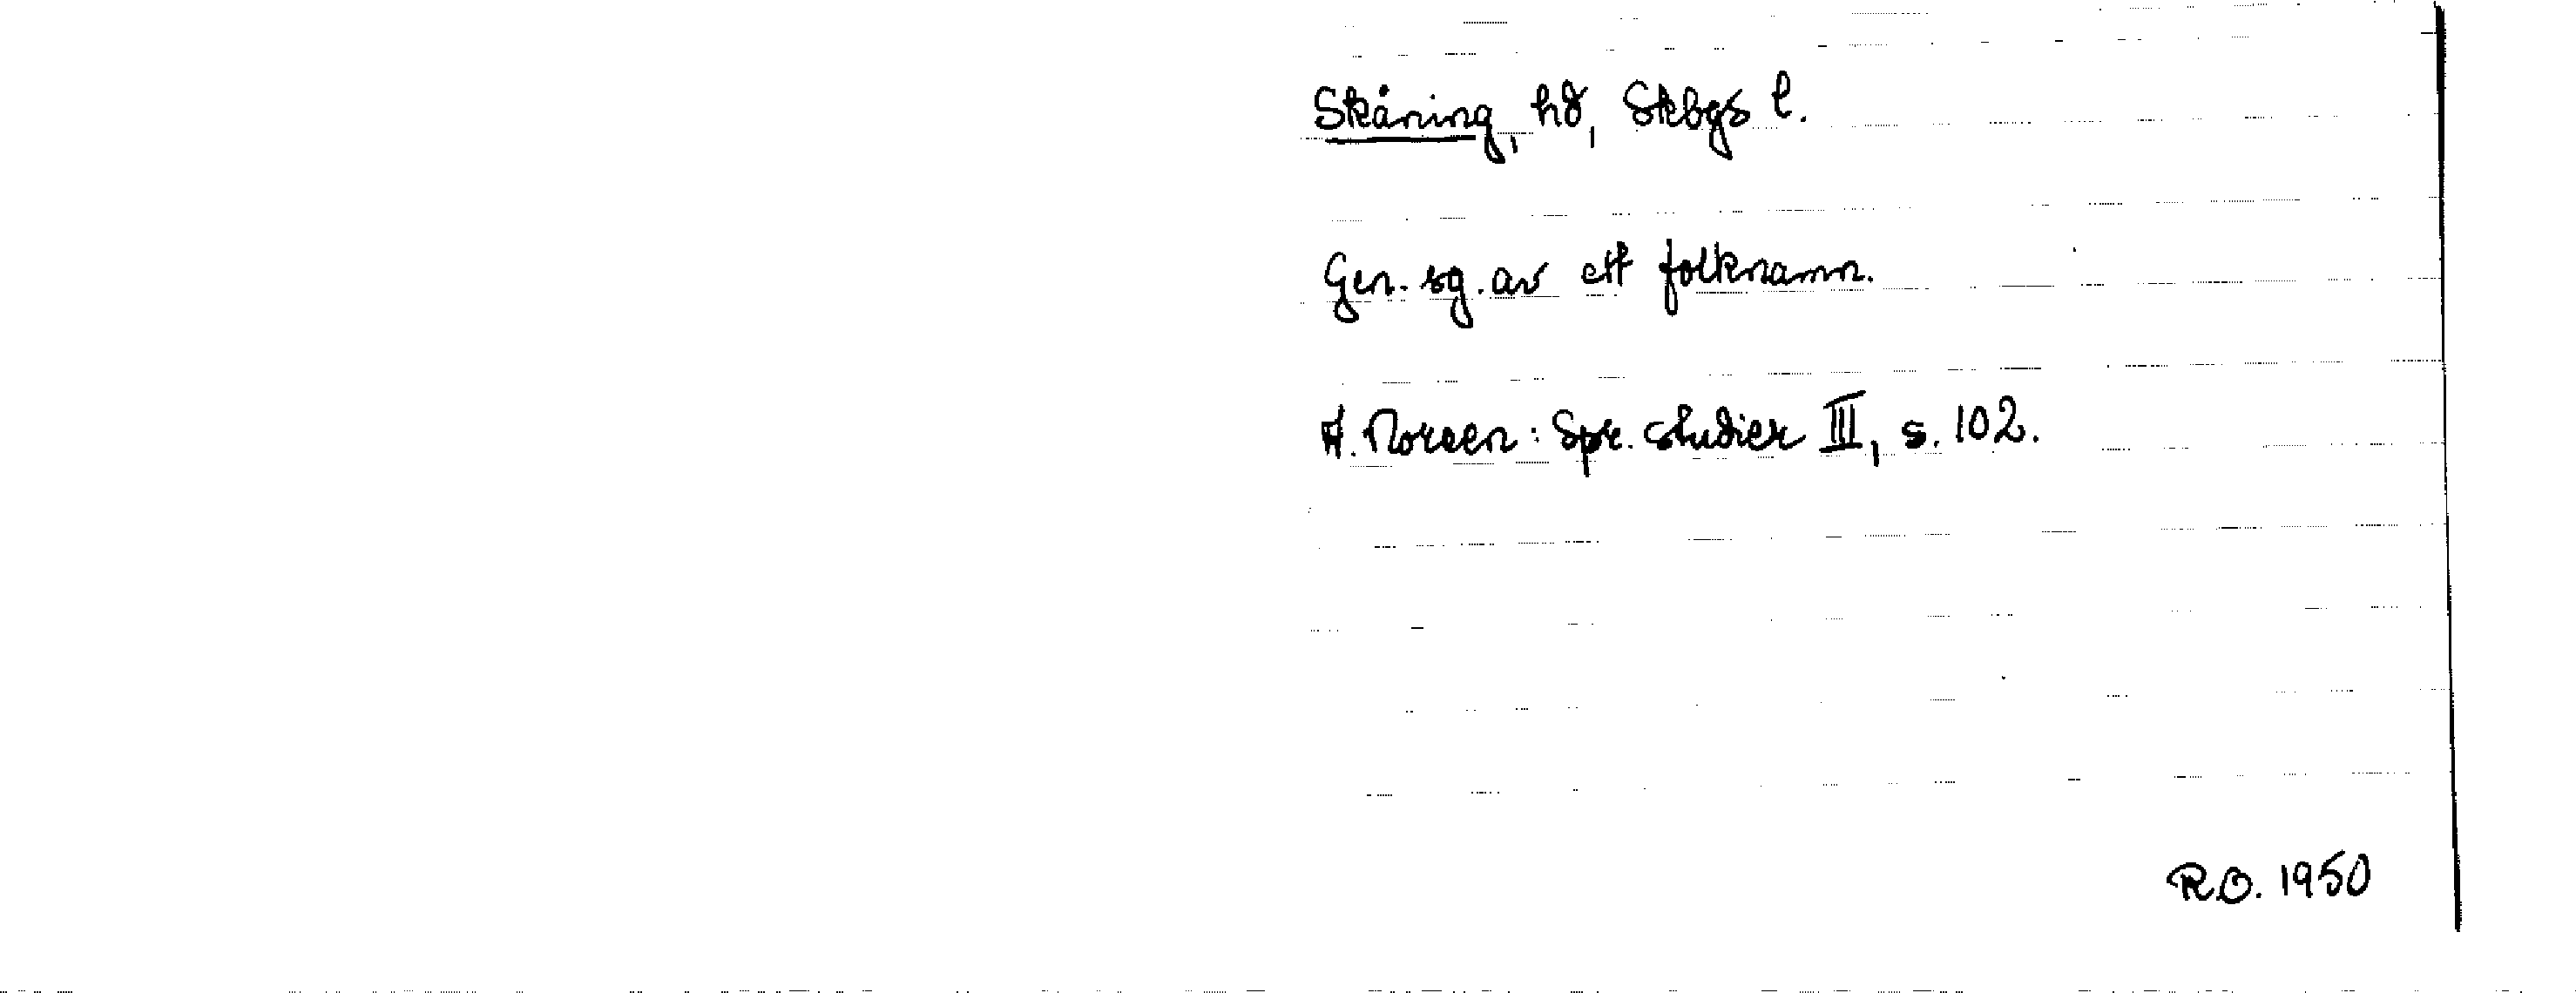 Skåning, hd, Skbgs l.
Gen. sg. av ett folknamn.
A. Noreen: Spr. studier III, s. 102.
R.O. 1950